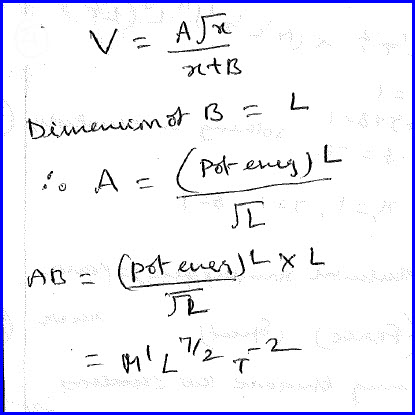 V = A√x / x+B
Dimension of B = L
∴ A = (Pot energ) L / √L
AB = (pot ener) L × L / √L
= M¹ L^7/2 T^-2